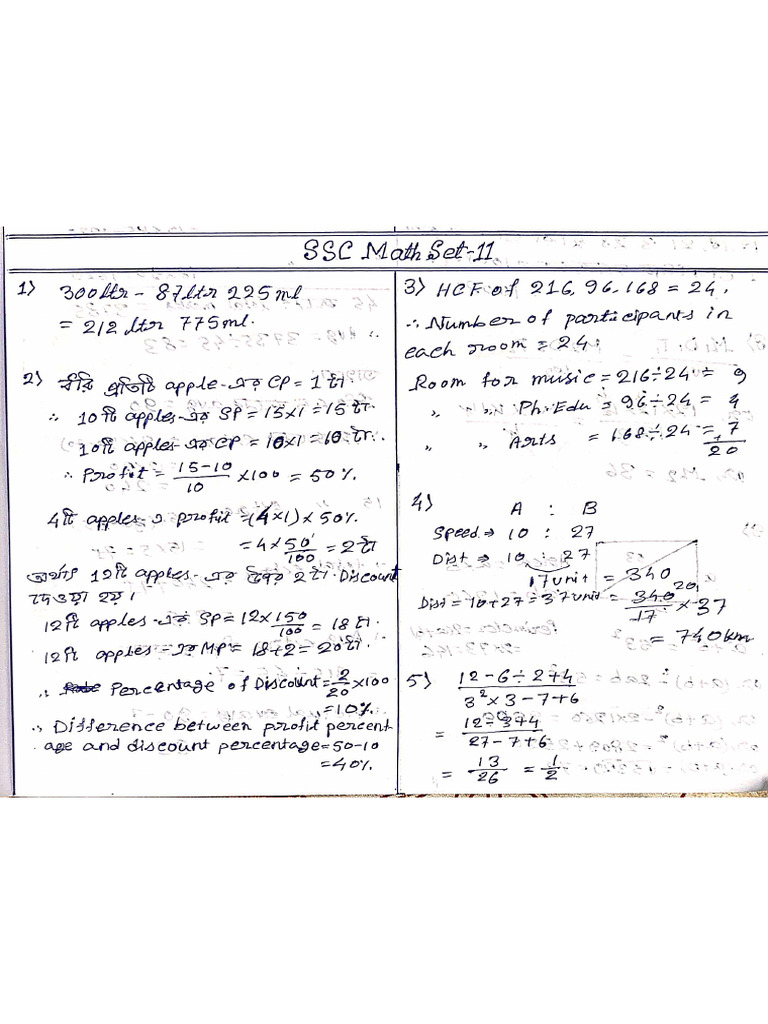 SSC Math Set-11
1) 300ltr - 87ltr 225ml
= 212 ltr 775ml.
2) ধরি প্রতিটি apple-এর CP = 1 টা.
∴ 10টি apples-এর SP = 15×1 = 15 টা.
10টি apples-এর CP = 10×1 = 10 টা.
∴ Profit = (15-10)/10 × 100 = 50%.
4টি apples-এ profit = (4×1) × 50%
= 4 × 50/100 = 2 টা
অর্থাৎ 12টি apples-এর উপর 2 টা. Discount
দেওয়া হয়।
12টি apples-এর SP = 12 × 150/100 = 18 টা.
12টি apples-এর MP = 18+2 = 20 টা.
∴ Percentage of Discount = 2/20 × 100
= 10%.
∴ Difference between profit percent
age and discount percentage = 50-10
= 40%.
3) HCF of 216, 96, 168 = 24.
∴ Number of participants in
each room = 24.
Room for music = 216÷24 = 9
„ „ Ph. Edu = 96÷24 = 4
„ „ Arts = 168÷24 = +7
20
4) A : B
Speed → 10 : 27
Dist → 10 : 27
17 unit = 340
Dist = 10+27 = 37 unit = 340/17 20 × 37
= 740 km
5) (12-6÷2+4)/(3²×3-7+6)
= (12-3+4)/(27-7+6)
= 13/26 = 1/2